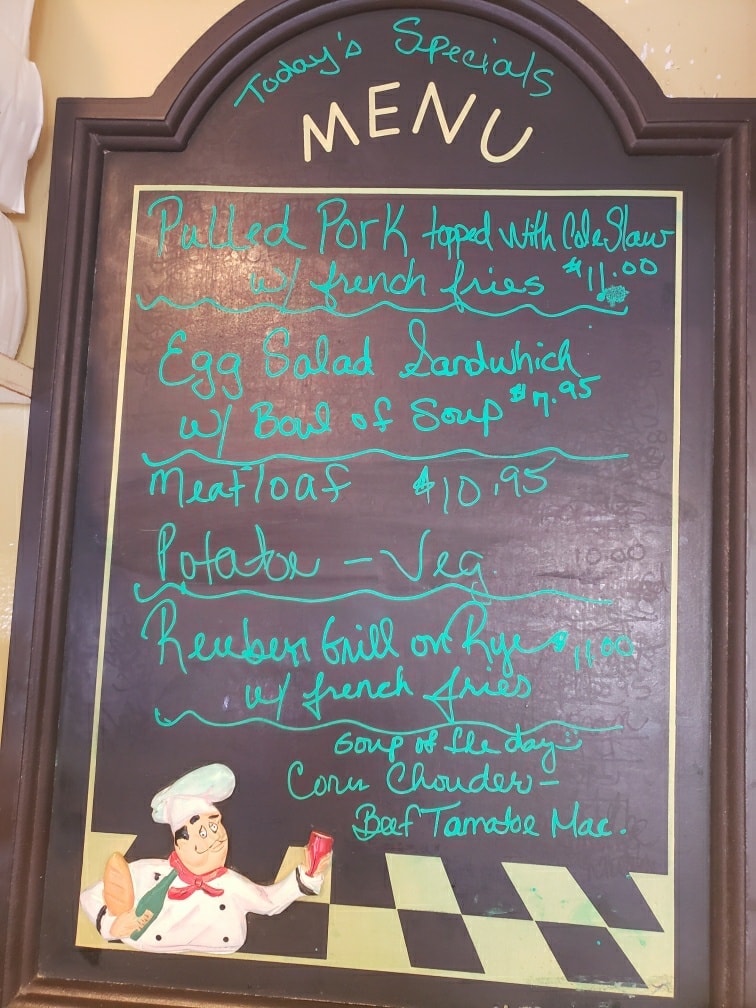 Today's Specials
MENU
Pulled Pork topped with Cole Slaw
w/ french fries $11.00
Egg Salad Sandwhich
w/ Bowl of Soup $7.95
Meatloaf $10.95
Potatoe - Veg.
10.00
Reuben Grill on Rye $11.00
w/ french fries
Soup of the day
Corn Chouder -
Beef Tamatoe Mac.